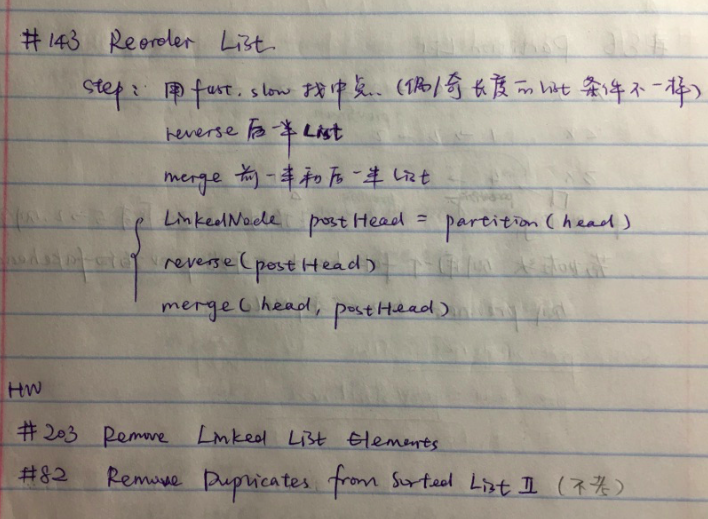 #143 Reorder List
step: 用 fast. slow 找中点. (偶/奇 长度的 list 条件不一样)
reverse 后一半 List
merge 前一半和后一半 List
LinkedNode postHead = partition(head)
reverse(postHead)
merge(head, postHead)
HW
#203 Remove Linked List Elements
#82 Remove Duplicates from Sorted List II (不考)